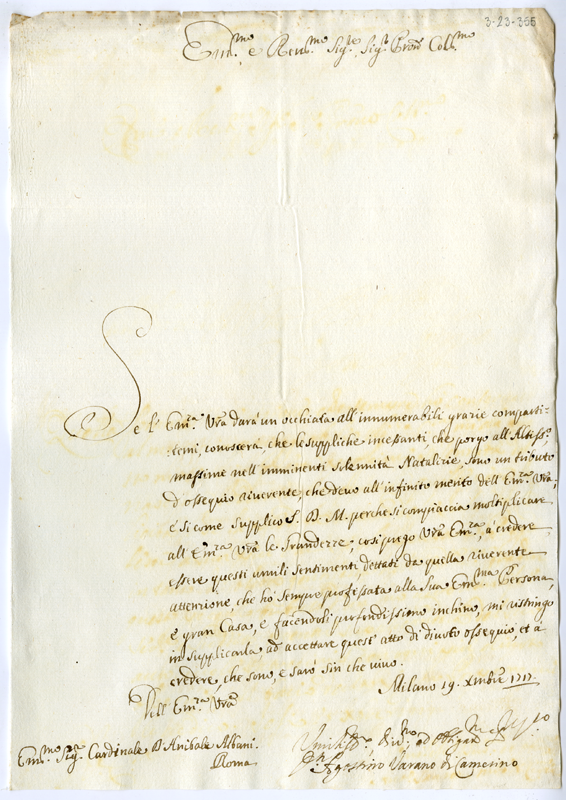 3-23-366
Em.mo e Rev.mo Sig.re Sig.r Pron Col.mo
Se l' Em.za Vra darà un occhiata all' innumerabili grazie comparti-
temi, conoscerà, che le suppliche incessanti, che porgo all' Altiss.o
massime nell' imminenti solennità Natalizie, sono un tributo
d' ossequio riverente, che devo all' infinito merito dell' Em.za Vra,
e si come supplico S. D. M. perche si compiaccia moltiplicare
all' Em.za Vra le Grandezze, così prego Vra Em.za, a' credere
essere questi umili sentimenti dettati da quella riverente
attenzione, che hò sempre professata alla Sua Em.ma Persona,
e gran Casa, e facendoli profondissimo inchino, mi ristringo
in supplicarla, ad accettare quest' atto di divoto ossequio, et à
credere, che sono, e sarò sin che vivo.
Dell' Em.za Vra
Milano 19. Xmbre 1717.
Em.mo Sig.r Cardinale D' Anibale Albani.
Roma
Umiliss.o, Div.mo ed Obligat.mo
Agostino Varano di Camerino